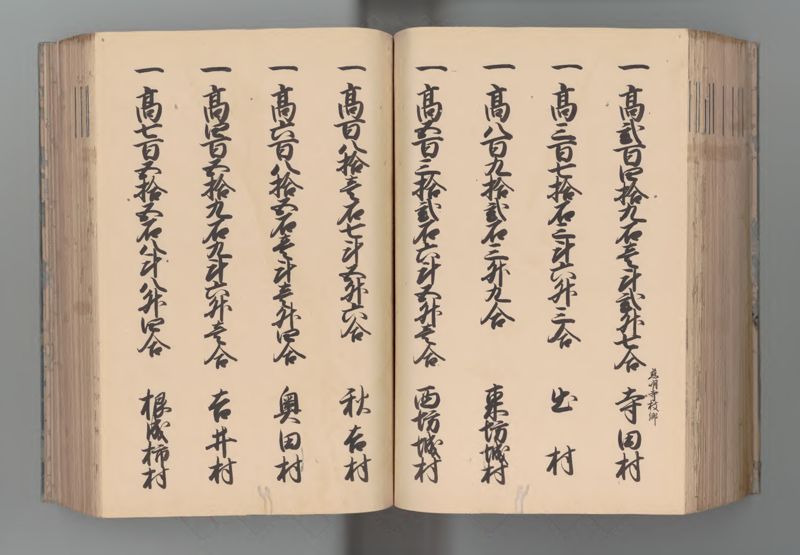 一 高弐百四拾九石壱斗弐升七合 寺田村
慈明寺枝郷
一 高三百七拾石三斗六升三合 出村
一 高八百九拾弐石三升九合 東坊城村
一 高五百三拾弐石六斗五升壱合 西坊城村
一 高百八拾壱石七斗五升六合 秋吉村
一 高六百八拾五石壱斗壱升四合 奥田村
一 高四百五拾九石九斗六升壱合 吉井村
一 高七百五拾五石八斗八升四合 根成柿村